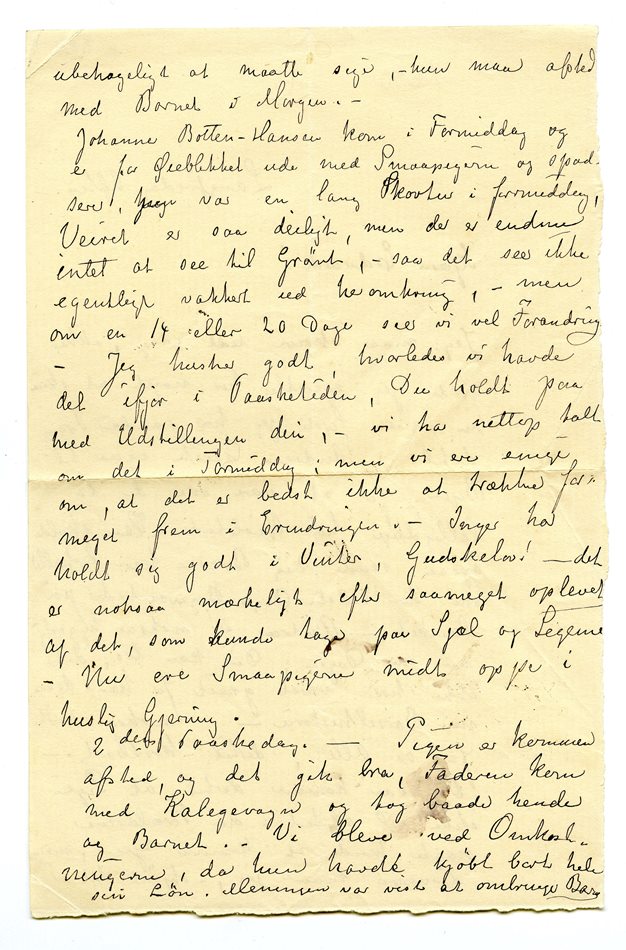 ubehageligt at maatte sige, – hun maa afsted
med Barnet i Morgen. –
Johanne Botten-Hansen kom i Formiddag og
er for Øieblikket ude med Smaapigerne og spad-
serer, var en lang Skovtur i formiddag,
Veiret er saa deiligt, men der er endnu
intet at see til Grönt, – saa det seer ikke
egentligt vakkert ud heromkring, – men
om en 14 eller 20 Dage seer vi vel Forandring
– Jeg husker godt, hvorledes vi havde
det ifjor i Paasketiden, Du holdt paa
med Udstillingen din, – vi har nettop talt
om det i Formiddag; men vi ere enige
om, at det er bedst ikke at trække for
meget frem i Erindringen. – Inger har
holdt sig godt i Vinter, Gudskelov! – det
er noksaa mærkeligt efter saameget oplevet
af det, som kunde tage paa Sjæl og Legeme
– Nu ere Smaapigerne midt oppe i
huslig Gjerning.
2den Paaskedag. – Pigen er kommen
afsted, og det gik bra, Faderen kom
med Kalegevogn og tog baade hende
og Barnet. – Vi bleve ved Omkost-
ningerne, da hun havde kjöbt bort hele
sin Lön. Meningen var vist at ombringe Bar-